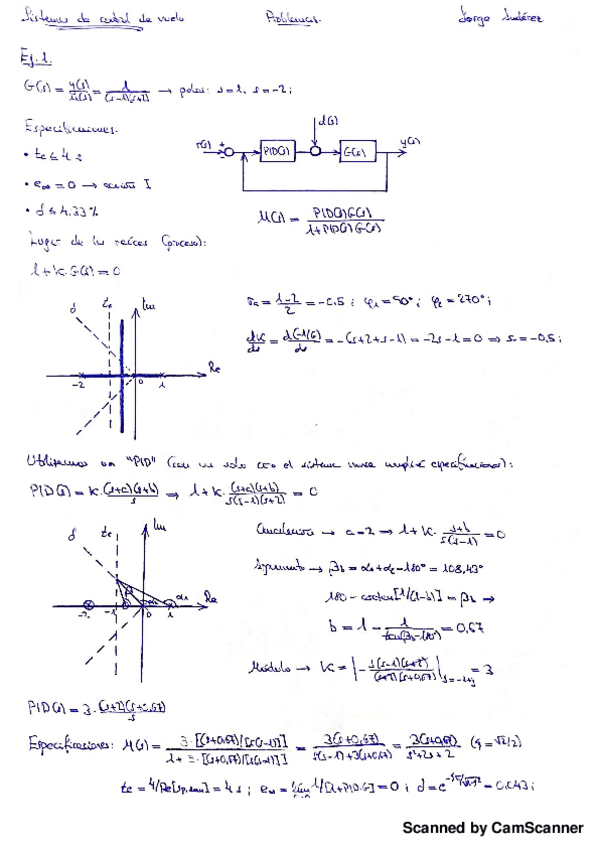 Sistemas de control de vuelo Problemas. Jorge
Ej. 1.
G(s) = y(s)/u(s) = 1/((s-1)(s+2)) → polos: s=1, s=-2;
Especificaciones.
d(s)
• te ≤ 4 s
r(s) + - PID(s) G(s) y(s)
• e∞ = 0 → acción I
• δ ≤ 4.33 %
M(s) = PID(s)G(s)/(1+PID(s)G(s))
Lugar de las raíces (proceso):
1+K·G(s) = 0
δ te Im
σa = (1-2)/2 = -0,5 ; φ1 = 90° ; φ2 = 270° ;
dK/ds = d(-1/G)/ds = -(s+2+s-1) = -2s-1 = 0 ⇒ s = -0,5 ;
Re
-2 0 1
Utilizamos un "PID" (con un solo cero el sistema nunca cumplirá especificaciones):
PID(s) = K·(s+a)(s+b)/s ⇒ 1+K·(s+a)(s+b)/(s(s-1)(s+2)) = 0
δ te Im
Cancelación → a=2 → 1+K·(s+b)/(s(s-1)) = 0
Argumento → βb = α1+α2-180° = 108,43°
Re
-2 -1 0 1
180 - arctan[1/(1-b)] = βb ⇒
b = 1 - 1/tan(βb-180°) = 0,67
Módulo → K = |-s(s-1)(s+2)/((s+2)(s+0,67))| s=-1+j = 3
PID(s) = 3·(s+2)(s+0,67)/s
Especificaciones: M(s) = 3·[(s+0,67)/[s(s-1)]]/(1+3·[(s+0,67)/[s(s-1)]]) = 3(s+0,67)/(s(s-1)+3(s+0,67)) = 3(s+0,67)/(s²+2s+2) (ξ=√2/2)
te = 4/Re[sp,dom] = 4 s ; e∞ = lim 1/[1+PID·G] = 0 ; δ = = 0,043 ;
Scanned by CamScanner